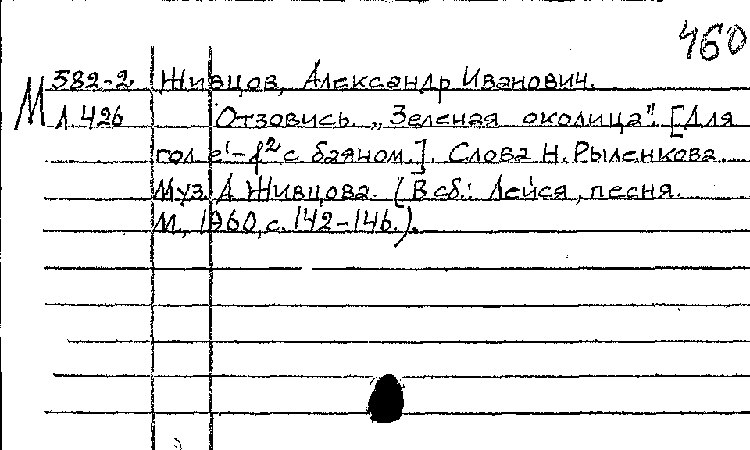 460
М 382-2 Живцов, Александр Иванович.
Л 426 Отзовись. „Зеленая околица". [Для
гол. e¹-f² с баяном.]. Слова Н. Рыленкова.
Муз. А. Живцова. (В сб.: Лейся, песня.
М., 1960, с. 142-146.).